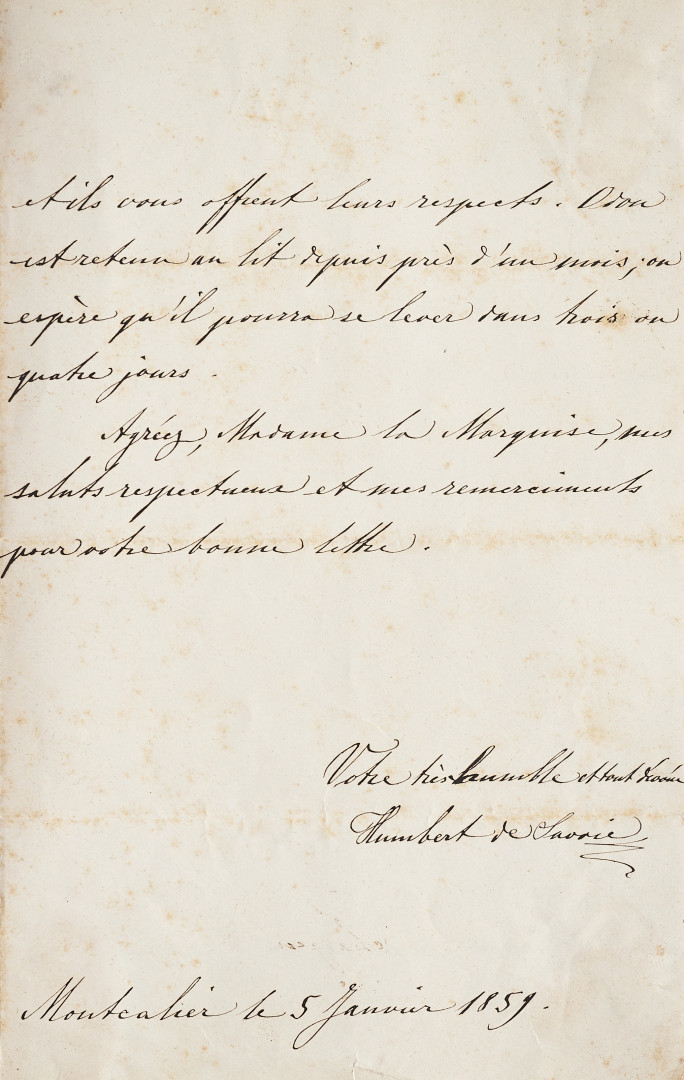 et ils vous offrent leurs respects. Odon
est retenu au lit depuis près d'un mois; on
espère qu'il pourra se lever dans trois ou
quatre jours.
Agréez, Madame la Marquise, mes
saluts respectueux et mes remerciments
pour votre bonne lettre.
Votre très humble et tout dévoué
Humbert de Savoie
Montcalier le 5 Janvier 1859.